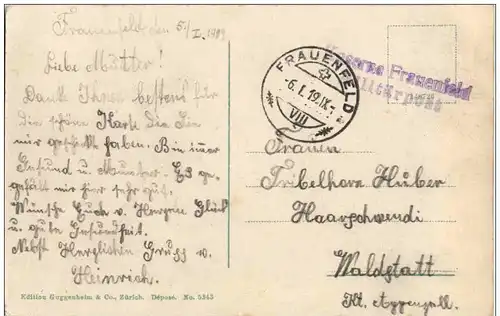 Frauenfeld den 5./I. 1919
Liebe Mutter!
Dank Ihnen bestens für
die schöne Karte die Sie
mir geschikt haben. Bin immer
Gesund u. Munter. Es ge-
gefällt mir hier sehr gut.
Wünsche Euch v. Herzen Glück
u. gute Gesundheit.
Nebst Herzlichen Gruss v.
Heinrich.
Edition Guggenheim & Co., Zürich. Déposé. No. 5343
FRAUENFELD
-6.I.19.IX-
VIII
Kaserne Frauenfeld
Militärpost
Frauen
Tribelhorn Huber
Haarschwendi
Waldstatt
Kt. Appenzell.